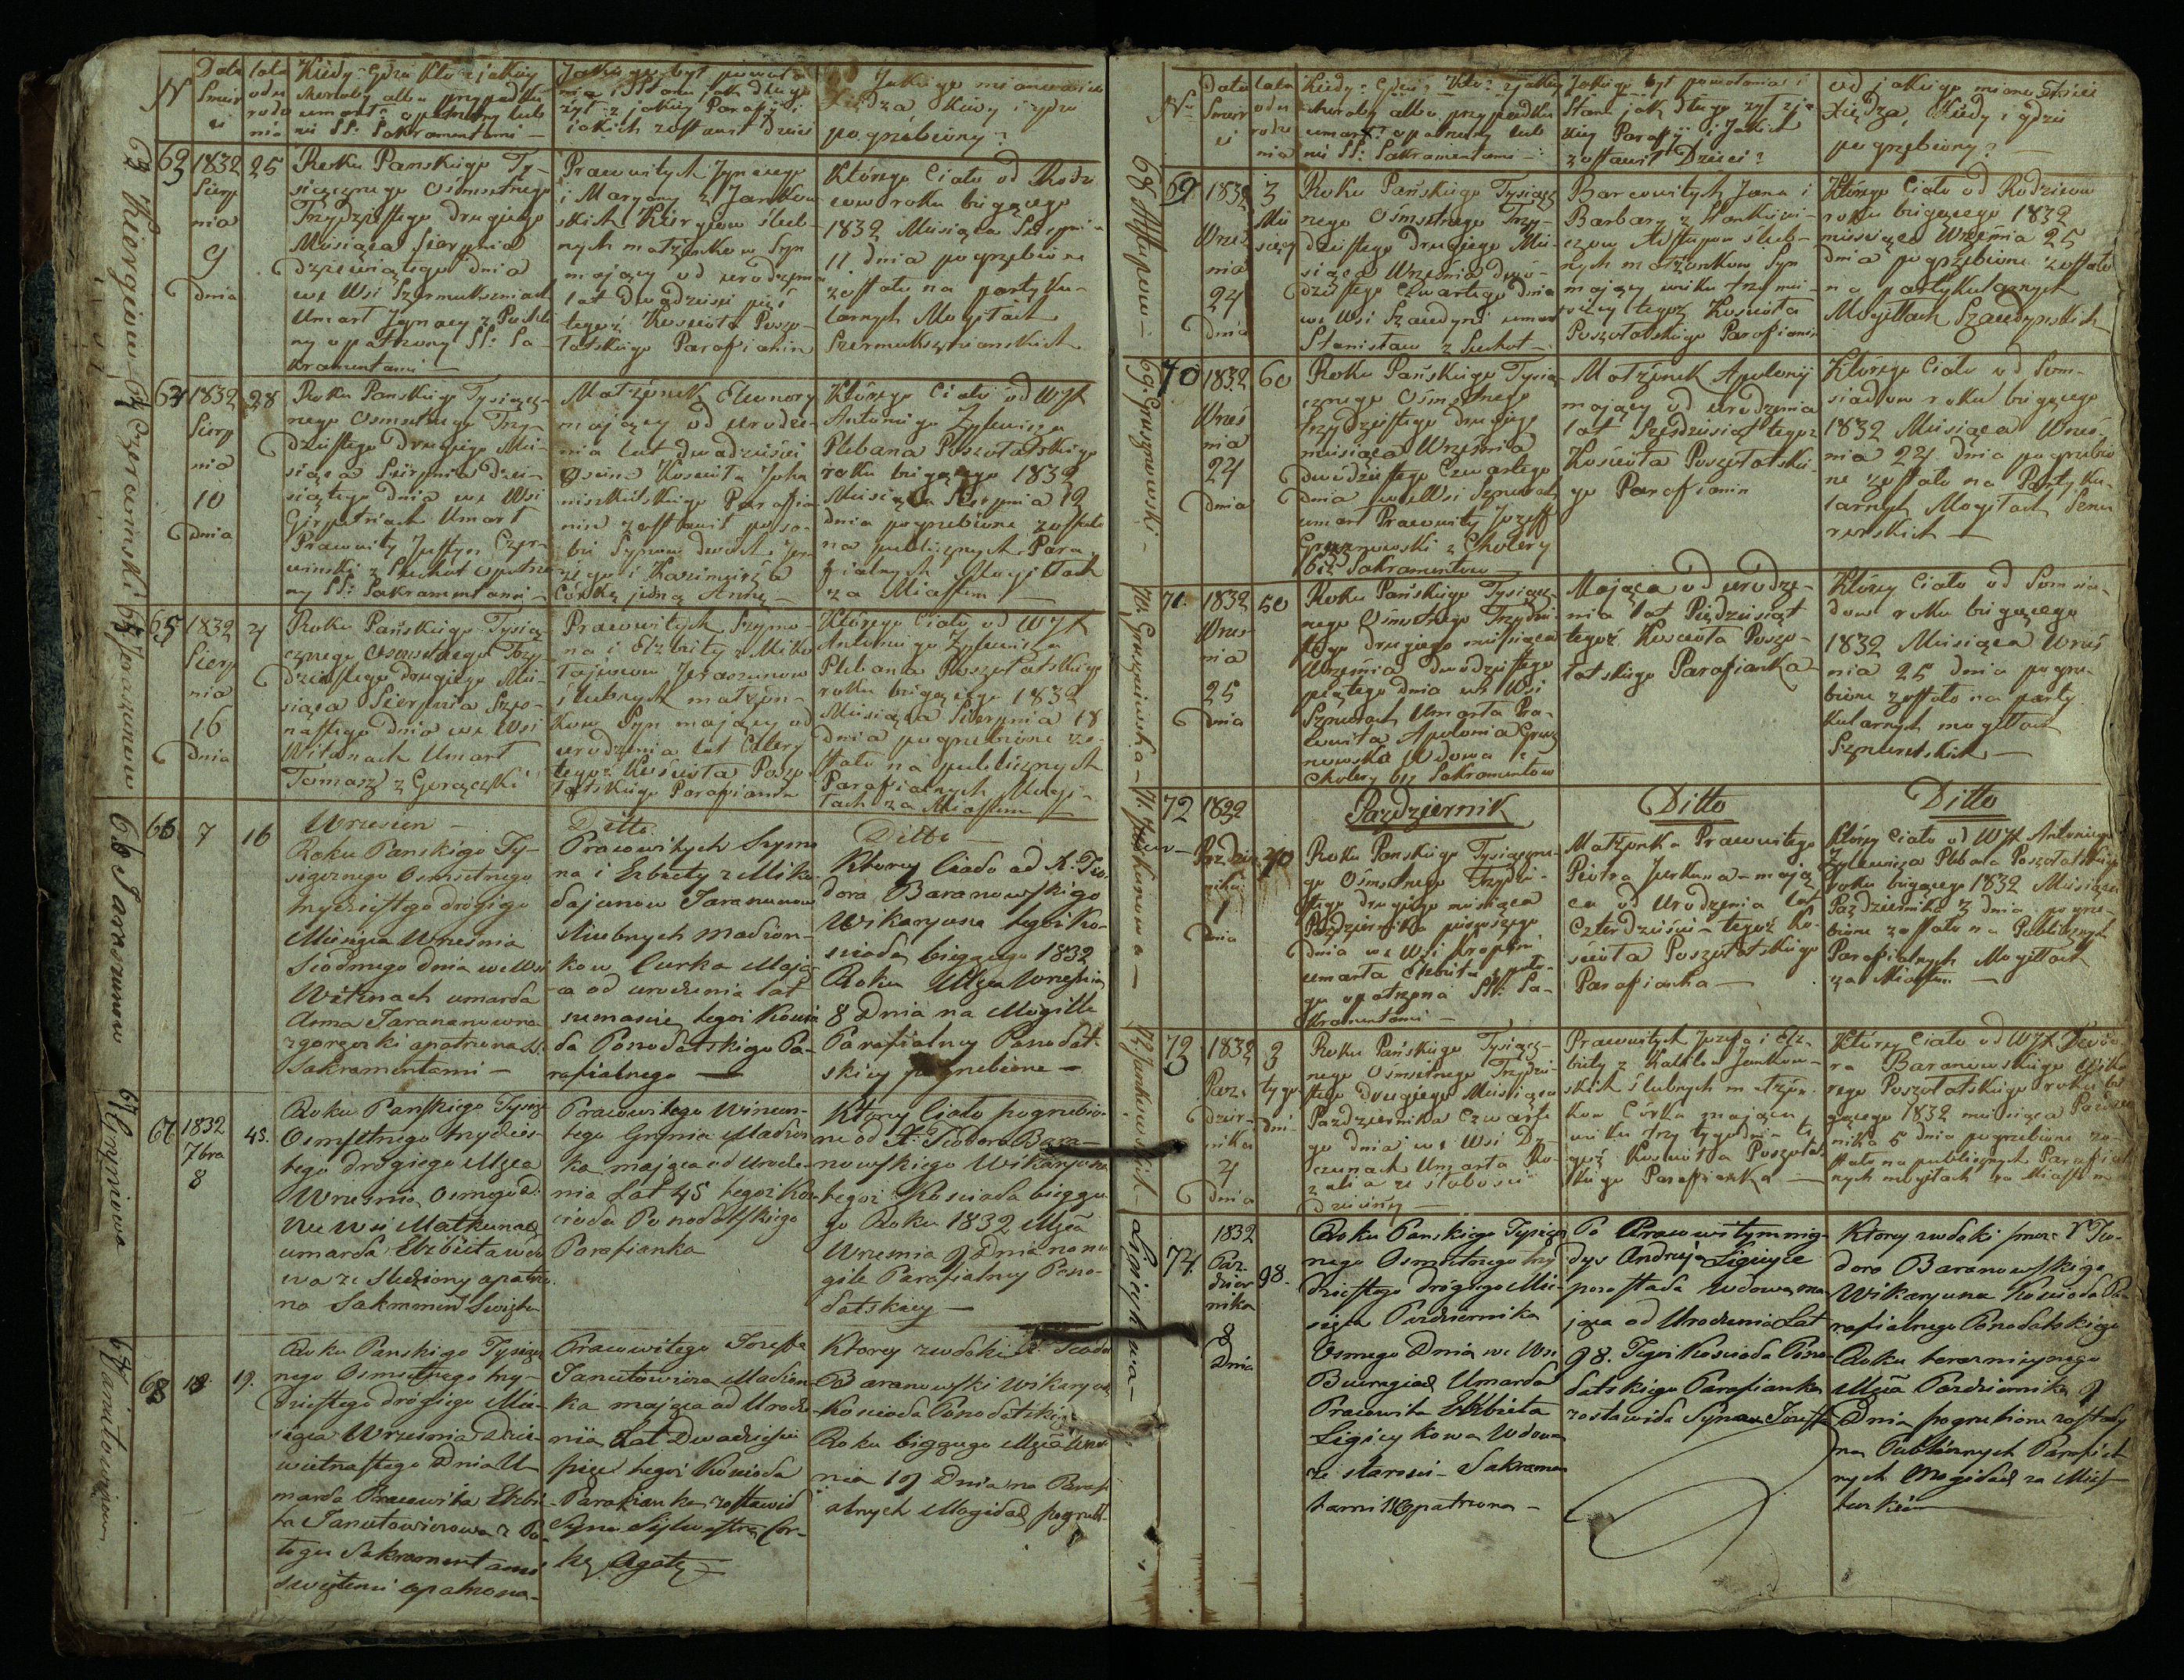 N
Data
Śmier
ci
lata
odu
rodze
nia
Kiedy? Gdzie Kto z jakiey
choroby albo przypadku
umarł? opatrzony lub
nie SS: Sakramentami —
Jakiego był powoła
nia i Stanu jak długo
żył z jakiey Parafji i
jakich zostawił dzieci
Jakiego mianowicie
Xiędza Kiedy i gdzie
pogrzebiony?
63
1832
Sierp
nia
9
dnia
25
Roku Panskiego Ty-
siącznego Osmsetnego
Trzydziestego drugiego
Miesiąca Sierpnia
dziewiątego dnia
we Wsi Szermukszniach
Umarł Jgnacy z Puchli
ny opatrzony SS: Sa-
kramentami —
Pracowitych Jgnacego
i Maryany z Jankow
skich Kiergiew ślub-
nych małżonkow Syn
mający od urodzenia
lat dwadzieści pięć
tegoż Koscioła Poszo-
łatskiego Parafianin
Którego Ciało od Rodzi
cow roku bigącego
1832 Miesiąca Sierpnia
11 dnia pogrzebione
zostało na partyku-
larnych Mogiłach
Szermukszniańskich
64
1832
Sierp
nia
10
dnia
28
Roku Panskiego Tysiącz-
nego Osmsetnego Trzy-
dziestego drugiego Mie-
siąca Sierpnia dzie-
siątego dnia we Wsi
Umarł
Pracowity Justyn Czer-
winski z Suchot opatrzo
ny SS: Sakramentami —
Małżonek Eleonory
mający od urodze-
nia lat dwadzieści
Osim Koscioła Joha
niszkielskiego Parafia
nin zostawił po so-
bie Synow dwóch Jer
zego i Kazimierza
Córkę jedną Annę —
Którego Ciało od WJX
Antoniego Żylewicza
Plebana Poszołatskiego
roku bigącego 1832
Miesiąca Sierpnia 12
dnia pogrzebione zostało
na publicznych Para
fialnych Mogiłach
za Miastem —
65
1832
Sierp
nia
16
dnia
4
Roku Pańskiego Tysią
cznego Osmsetnego Trzy
dziestego drugiego Mie-
siąca Sierpnia Szes-
nastego dnia we Wsi
Witunach Umarł
Tomasz z Gorączki
Pracowitych Szymo-
na i Elzbiety z Miko
łajunow Jerasunow
ślubnych małżon-
kow Syn mający od
urodzenia lat Cztery
tegoż Kościoła Poszo-
łatskiego Parafianin
Którego Ciało od WJX
Antoniego Żylewicza
Plebana Poszołatskiego
roku bigącego 1832
Miesiąca Sierpnia 18
dnia pogrzebione zo-
stało na publicznych
Parafialnych Mogi-
łach za Miastem
66
7
16
Wrzesien —
Roku Panskiego Ty-
siącznego Osmsetnego
trzydziestego drogiego
Miesiąca Wrzesnia
Siodmego dnia we Wsi
Witunach umarła
Anna Jarasunowna
z gorączki opatrzona SS.
Sakramentami —
Ditto
Pracowitych Szymo
na i Elzbiety z Miko-
łajunow Jarasunow
sliubnych małżon-
kow Curka Mają-
ca od urodzenia lat
szesnascie tegoż Koscio
ła Poszołatskiego Pa-
rafialnego —
Ditto —
Ktorey Ciało od X. Teo-
dora Baranowskiego
Wikaryusza tegoż Ko-
scioła biggcego 1832
Roku Msca Wrzesnia
8 Dnia na Mogille
Parafialney Poszołat-
skiey pogrzebione —
67
1832
7bra
8
45.
Roku Panskiego Tysiąc
Osmsetnego trzydzies-
tego drogiego Msca
Wrzesnia Osmego d.
We Wsi Matkunach
umarła Elzbieta
wa ze Sledziony opatrzo
na Sakrament Swięte
Pracowitego Wincen-
tego Małżon
ka mająca od Urodze-
nia Lat 45 tegoż Ko-
scioła Poszołatskiego
Parafianka
Ktorey Ciało pogrzebio-
ne od X. Teodora Bara-
nowskiego Wikaryusza
tegoż Koscioła biggce-
go Roku 1832 Msca
Wrzesnia 9 Dnia na mo
gile Parafialney Poszo-
łatskiey —
68
19.
19.
Roku Panskiego Tysiącz
nego Osmsetnego trzy-
dziestego drogiego Mie-
siąca Wrzesnia Dzie-
wietnastego Dnia U-
marła Pracowita Elzbie
ta Janutowiczowa z Po-
łogu Sakramentami
Swiętemi opatrzona —
Pracowitego Jozefa
Janutowicza Małżon-
ka mająca od Urodze
nia Lat Dwadziescia
pięc tegoż Koscioła
Parafianka zostawiła
Syna Sylwestra Cor-
kę Agatę —
Ktorey zwłoki X. Teodor
Baranowski Wikaryusz
Koscioła Poszołatskiego
Roku biggcego Msca Wrzes
nia 19 Dnia na Parafi
alnych Mogiłach pogrzebł
63 Kiergiew — 64 Czerwinski 65 Jerasunow 66 Jarasunow 67 68 Janutowiczowa
No
Data
Śmier
ci
lata
odu
rodze
nia
Kiedy? Gdzie? Kto? z jakiey
choroby albo przypadku
umarł? opatrzony lub
nie SS: Sakramentami —
Jakiego był powołania i
Stanu jak długo żył z ja
kiey Parafji i Jakich
zostawił Dzieci?
od jakiego mianowicie
Xiędza, Kiedy i gdzie
pogrzebiony? —
69
1832
Wrześ
nia
24
dnia
3
Mie
sięcy
Roku Pańskiego Tysiącz
nego Ośmsetnego Trzy-
dziestego drugiego Mie-
siąca Września dwó-
dziestego Czwartego dnia
we Wsi Szaudyni umarł
Stanisław z Suchot —
Pracowitych Jana i
Barbary z Stankiewi-
czow Astupow ślub-
nych małżonkow Syn
mający wieku trzy mie-
sięcy tegoż Kościoła
Poszołatskiego Parafianin
Którego Ciało od Rodzicow
roku bigącego 1832
miesiąca Września 25
dnia pogrzebione zostało
na partykularnych
Mogiłłach Szaudyńskich
70
1832
Wrześ
nia
24
dnia
60
Roku Pańskiego Tysią-
cznego Ośmsetnego
trzydziestego drugiego
miesiąca Września
dwódziestego Czwartego
dnia we Wsi Sznurach
umarł Pracowity Jozeff
Gruznowski z Cholery
bez Sakramentow
Małżonek Apolonji
mający od urodzenia
lat Sześdziesiąt tegoż
Kościoła Poszołatskie-
go Parafianin
Którego Ciało od Somsi-
siadow roku bigącego
1832 Miesiąca Wrześ-
nia 24 dnia pogrzebio
ne zostało na Partyku-
larnych Mogiłach Sznu
rowskich —
71.
1832
Wrześ
nia
25
dnia
50
Roku Pańskiego Tysiącz-
nego Ośmsetnego Trzydzie
stego drugiego miesiąca
Września dwódziestego
piątego dnia we Wsi
Sznurach Umarła Pra-
cowita Apolonia Gruz
nowska Wdowa z
Cholery bez Sakramentow
Mająca od urodze-
nia lat Pięćdziesiąt
tegoż Kosciola Poszo-
łatskiego Parafianka
Którey Ciało od Somsia-
dow roku bigącego
1832 Miesiąca Wrześ
nia 25 dnia pogrze-
bione zostało na party
kularnych mogiłłach
Sznurowskich —
72
1832
Paździer
nika
1
dnia
40
Pazdziernik
Roku Panskiego Tysiączne-
go Ośmsetnego Trzydzie-
stego drugiego miesiąca
Października pierwszego
dnia we Wsi
umarła Elżbieta z poło-
gu opatrzona SS: Sa-
kramentami —
Ditto
Małżonka Pracowitego
Piotra Jurkuna — mają
ca od Urodzenia lat
Czterdzieści — tegoż Ko-
ścioła Poszołatskiego
Parafianka —
Ditto
Którey Ciało od WJX Antoniego
Żylewicza Plebana Poszołatskiego
roku bigącego 1832 Miesiąca
Października 3 dnia pogrze-
bione zostało na Publicznych
Parafialnych Mogiłłach
za Miastem —
73
1832
Paź-
dzier-
nika
4
dnia
3
tygo
dni
Roku Pańskiego Tysiącz-
nego Ośmsetnego Trzydzie-
stego drugiego Miesiąca
Października Czwarte
go dnia we Wsi
Umarła Ro-
zalia ze słabości
dziecinny —
Pracowitych Jozefa i Elż-
biety z Jankow-
skich ślubnych małżon-
kow Córka mająca
wieku trzy tygodni te
goż Kosciola Poszołat
skiego Parafianka —
Którey Ciało od WJX Teodo
ra Baranowskiego Wika
rego Poszołatskiego roku bi
gącego 1832 miesiąca Paździer
nika 5 dnia pogrzebione zo-
stało na publicznych Parafial
nych mogiłach za Miastem
74.
1832
Paz-
dzier
nika
8
Dnia
98.
Roku Panskiego Tysiącz
nego Osmsetnego trzy
dziestego drogiego Mie-
siąca Pazdziernika
Osmego Dnia we Wsi
Umarła
Pracowita Elzbieta
Ligieykowa Wdowa
ze starosci — Sakramen
tami opatrzona —
Po Pracowitym nieg-
dys Andrzeja Ligieyce
pozostała Wdowa ma
jąca od Urodzenia Lat
98. Tegoż Koscioła Poszo-
łatskiego Parafianka
zostawiła Syna Jozeffa
Ktorey zwłoki przez X Teo-
dora Baranowskiego
Wikaryusza Koscioła Pa
rafialnego Poszołatskiego
Roku teraznieyszego
Msca Pazdziernika 9
Dnia pogrzebione zostały
na Publicznych Parafial
nych Mogiłach za Mias-
teczkiem
68 Astupow — 69 Gruznowski — 70 Gruzniewska — 71 Jurkunowa — 72 Jankowskich — Ligieykowa —